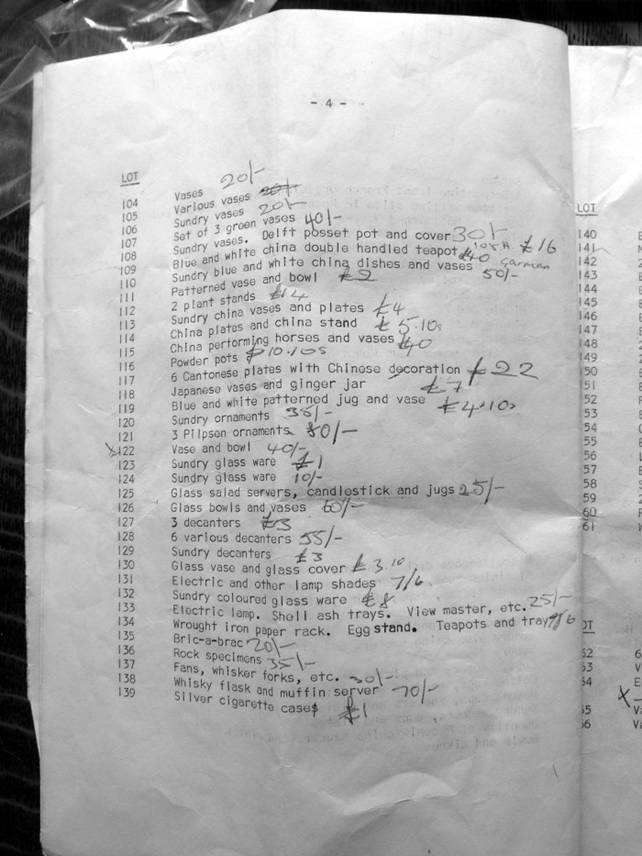 - 4 -
LOT
104 Vases 20/-
105 Various vases 20/-
106 Sundry vases 20/-
107 Set of 3 green vases 40/-
108 Sundry vases. Delft posset pot and cover 30/-
109 Blue and white china double handled teapot £16
110 Sundry blue and white china dishes and vases £40 German 50/-
111 Patterned vase and bowl £2
112 2 plant stands £14
113 Sundry china vases and plates £4
114 China plates and china stand £5.10s
115 China performing horses and vases £40
116 Powder pots £10.10s
117 6 Cantonese plates with Chinese decoration £22
118 Japanese vases and ginger jar £7
119 Blue and white patterned jug and vase £4.10s
120 Sundry ornaments 35/-
121 3 Pilpsen ornaments 80/-
X122 Vase and bowl 40/-
123 Sundry glass ware £1
124 Sundry glass ware 10/-
125 Glass salad servers, candlestick and jugs 25/-
126 Glass bowls and vases 60/-
127 3 decanters £3
128 6 various decanters 55/-
129 Sundry decanters £3
130 Glass vase and glass cover £3.10
131 Electric and other lamp shades 7/6
132 Sundry coloured glass ware £8
133 Electric lamp. Shell ash trays. View master, etc. 25/-
134 Wrought iron paper rack. Egg stand. Teapots and tray
135 Bric-a-brac 20/-
136 Rock specimens 35/-
137 Fans, whisker forks, etc. 30/-
138 Whisky flask and muffin server 70/-
139 Silver cigarette cases £1
LOT
140
141
142
143
144
145
146
147
148
149
50
51
52
53
54
55
56
57
58
59
60
61
OT
52
53
54
X
55
56